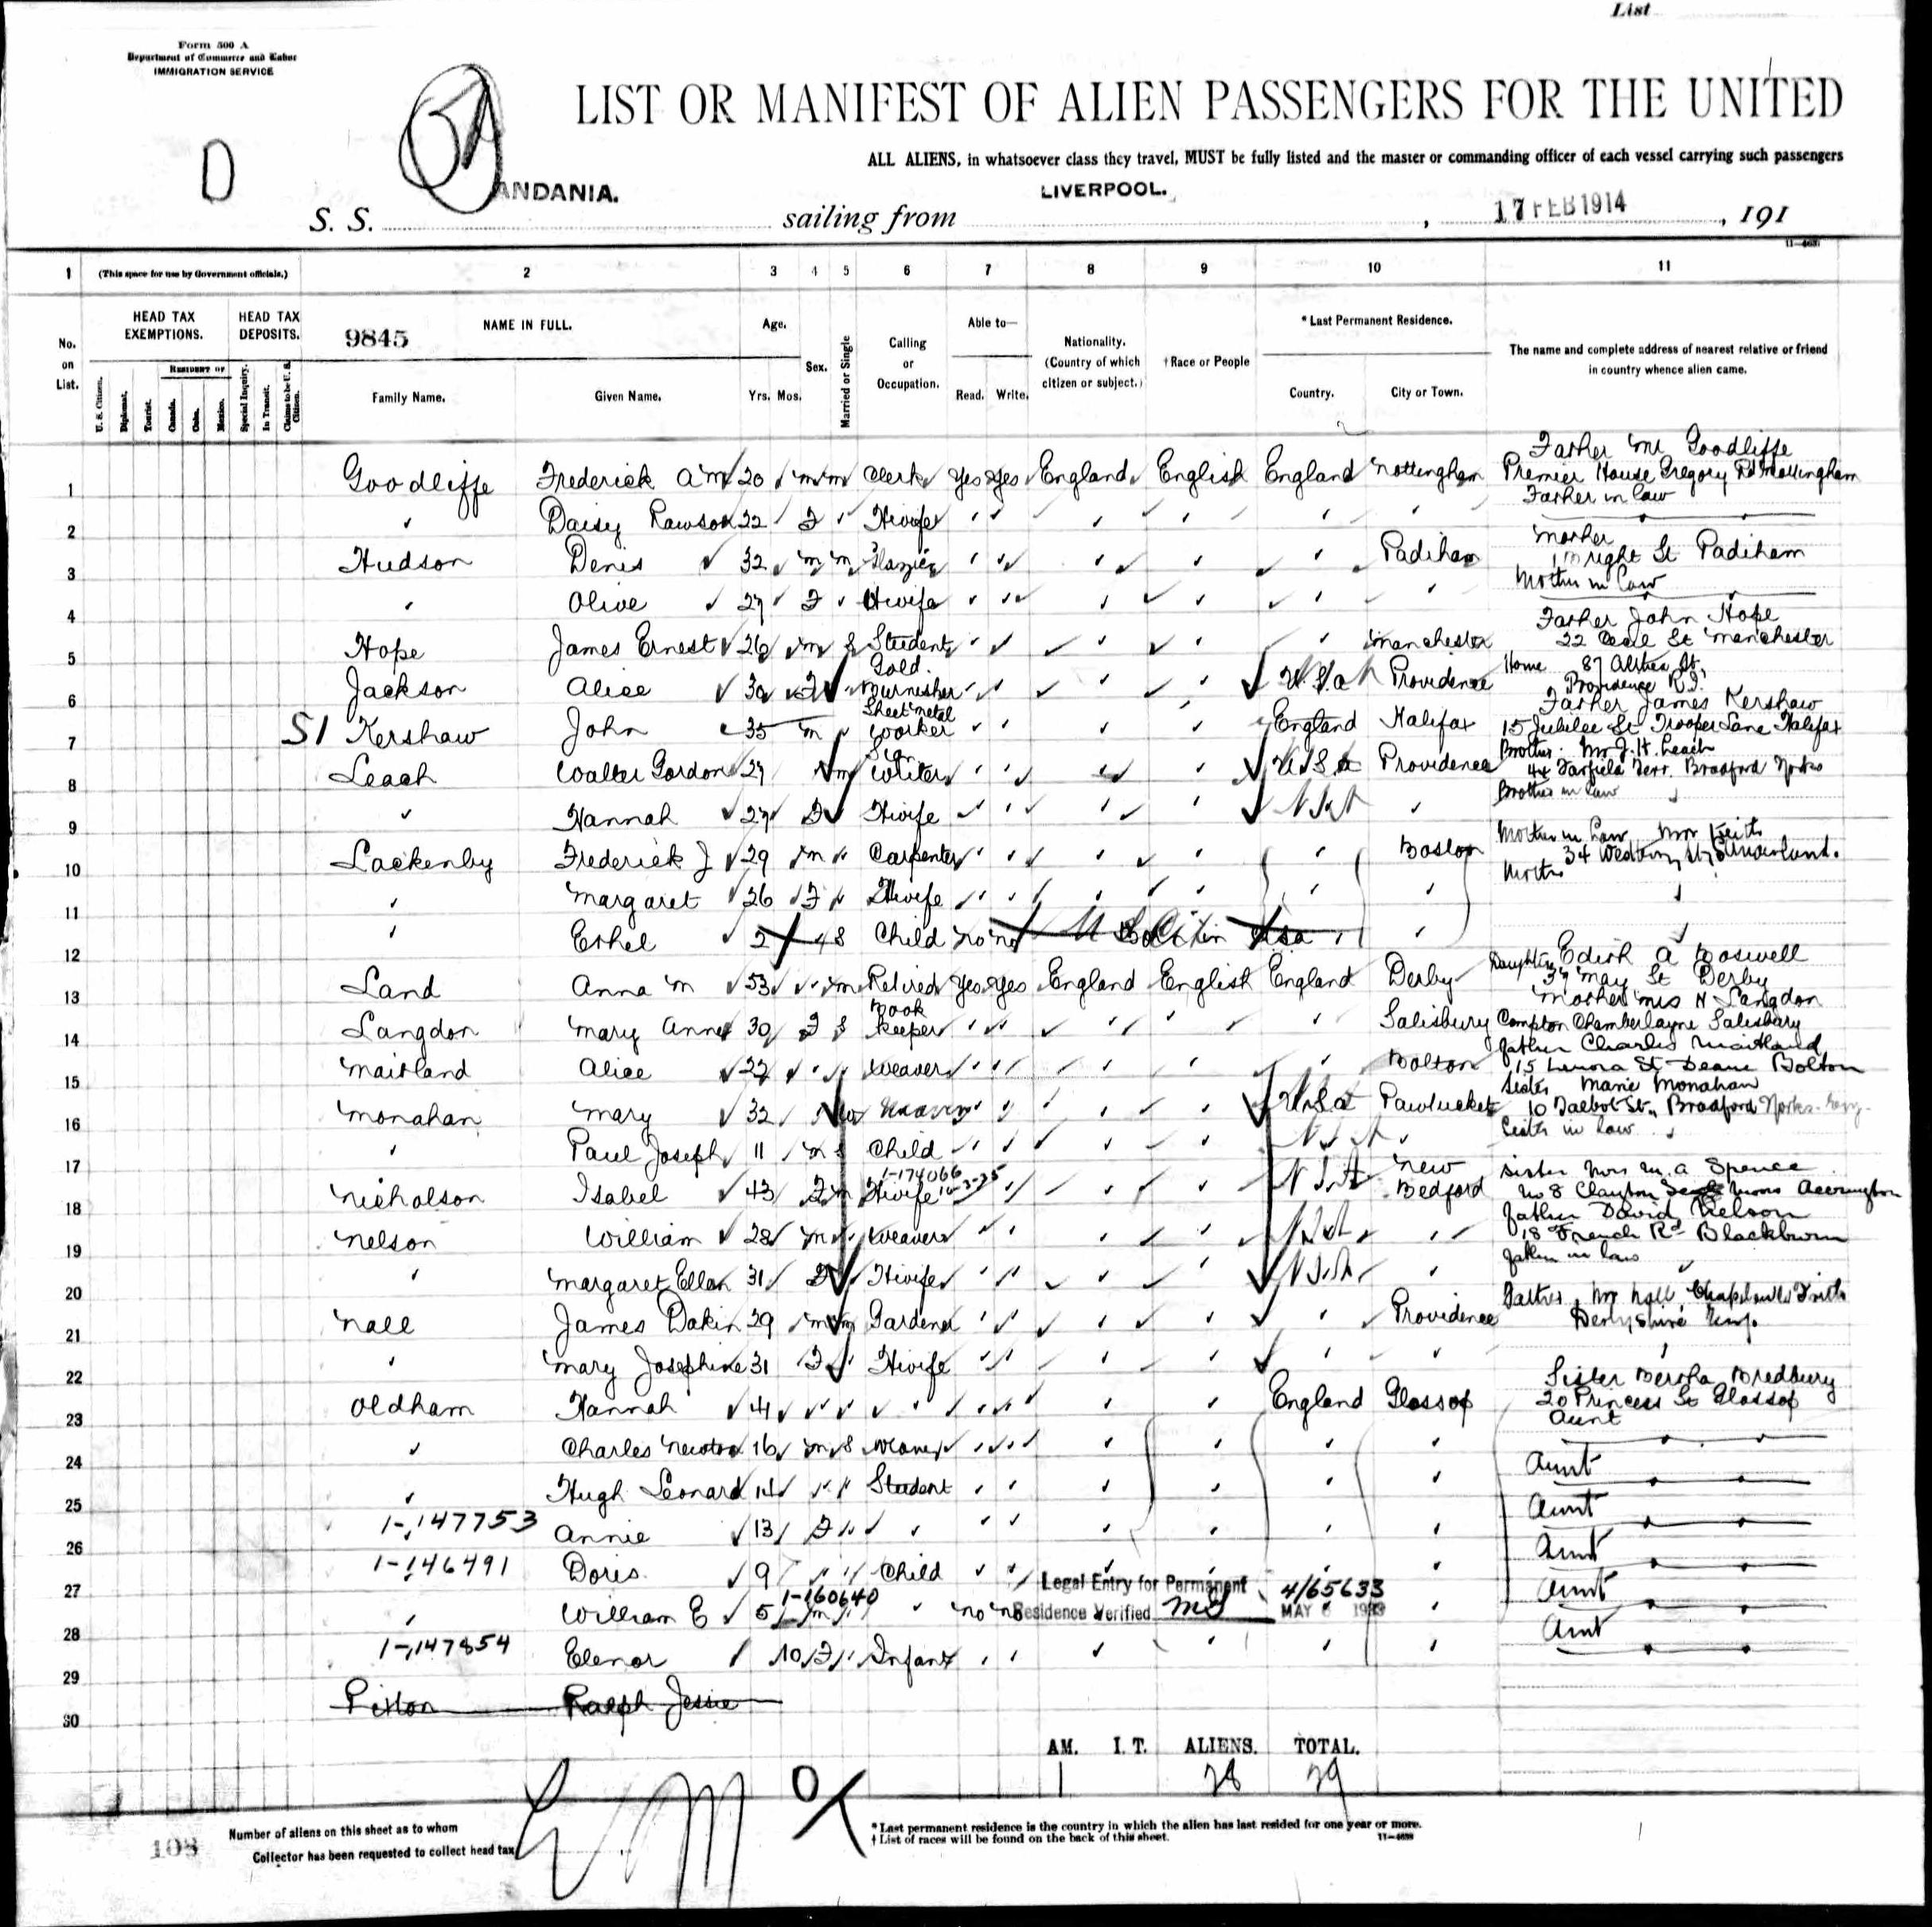 List
Form 500 A
Department of Commerce and Labor
IMMIGRATION SERVICE
D
LIST OR MANIFEST OF ALIEN PASSENGERS FOR THE UNITED
ALL ALIENS, in whatsoever class they travel, MUST be fully listed and the master or commanding officer of each vessel carrying such passengers
S. S. ANDANIA. sailing from LIVERPOOL. , 17 FEB 1914 , 191
1 (This space for use by Government officials.) 2 3 4 5 6 7 8 9 10 11
No. on List.
HEAD TAX EXEMPTIONS.
HEAD TAX DEPOSITS.
9845 NAME IN FULL.
Age.
Sex.
Married or Single
Calling or Occupation.
Able to—
Nationality. (Country of which citizen or subject.)
†Race or People
*Last Permanent Residence.
The name and complete address of nearest relative or friend in country whence alien came.
U. S. Citizen. Diplomat. Tourist. RESIDENT OF Canada. Cuba. Mexico. Special Inquiry. In Transit. Claims to be U. S. Citizen.
Family Name. Given Name. Yrs. Mos. Read. Write. Country. City or Town.
1 Goodliffe Frederick A m 20 m m Clerk Yes Yes England English England Nottingham Father Mr Goodliffe Premier House Gregory Rd Nottingham
2 " Daisy Rawson 22 F " Hwife Father in law
3 Hudson Denis 32 m m Glazier Padiham Mother 1 Wright St Padiham
4 " Olive 27 F " Hwife Mother in law
5 Hope James Ernest 26 m S Student Manchester Father John Hope 22 St Manchester
6 Jackson Alice 30 F Gold Burnisher U.S.A Providence Home 87 Althea St. Providence R.I.
7 S1 Kershaw John 35 m Sheet metal worker England Halifax Father James Kershaw 15 Jubilee St Trooper Lane Halifax
8 Leach Walter Gordon 27 m Sign Writer U.S.A Providence Brother Mr J. H. Leach 44 Farfield Terr. Bradford Yorks
9 " Hannah 27 F Hwife Brother in law
10 Lackenby Frederick J 29 m Carpenter Boston Mother in Law Mrs Keith 34 St Sunderland.
11 " Margaret 26 F Hwife Mother
12 " Ethel 2 S Child no no U S Citizen
13 Land Anna M 53 m Retired Yes Yes England English England Derby Daughter Edith A Boswell 37 May St Derby
14 Langdon Mary Anne 30 F S Book keeper Salisbury Mother Mrs H Langdon Compton Chamberlayne Salisbury
15 Maitland Alice 27 Weaver Bolton Father Charles Maitland 15 Lenora St Deane Bolton
16 Monahan Mary 32 w Weaver U.S.A Pawtucket Sister Marie Monahan 10 Talbot St., Bradford Yorks. Eng.
17 " Paul Joseph 11 m S Child Sister in law
18 Nicholson Isabel 43 F m Hwife 1-174066 New Bedford Sister Mrs M. A Spence No 8 Clayton Accrington
19 Nelson William 28 m Weaver Father David Nelson 18 French Rd Blackburn
20 " Margaret Ellen 31 F Hwife Father in law
21 Nall James Dakin 29 m m Gardener Providence Father Mr Nall, Derbyshire Eng.
22 " Mary Josephine 31 F Hwife
23 Oldham Hannah 41 England Glossop Sister Bertha Bredbury 20 Princess St Glossop
24 " Charles Newton 16 m S Weaver Aunt
25 " Hugh Leonard 14 Student Aunt
26 1-147753 Annie 13 F Aunt
27 1-146491 Doris 9 Child Aunt
28 " William E 5 m 1-160640 no no Legal Entry for Permanent Residence Verified 4/65633 MAY Aunt
29 1-147854 Elenor 10 F Infant Aunt
30 Pixton Ralph Jessie
AM. I. T. ALIENS. TOTAL.
1 28 29
108
Number of aliens on this sheet as to whom
Collector has been requested to collect head tax
* Last permanent residence is the country in which the alien has last resided for one year or more.
† List of races will be found on the back of this sheet.